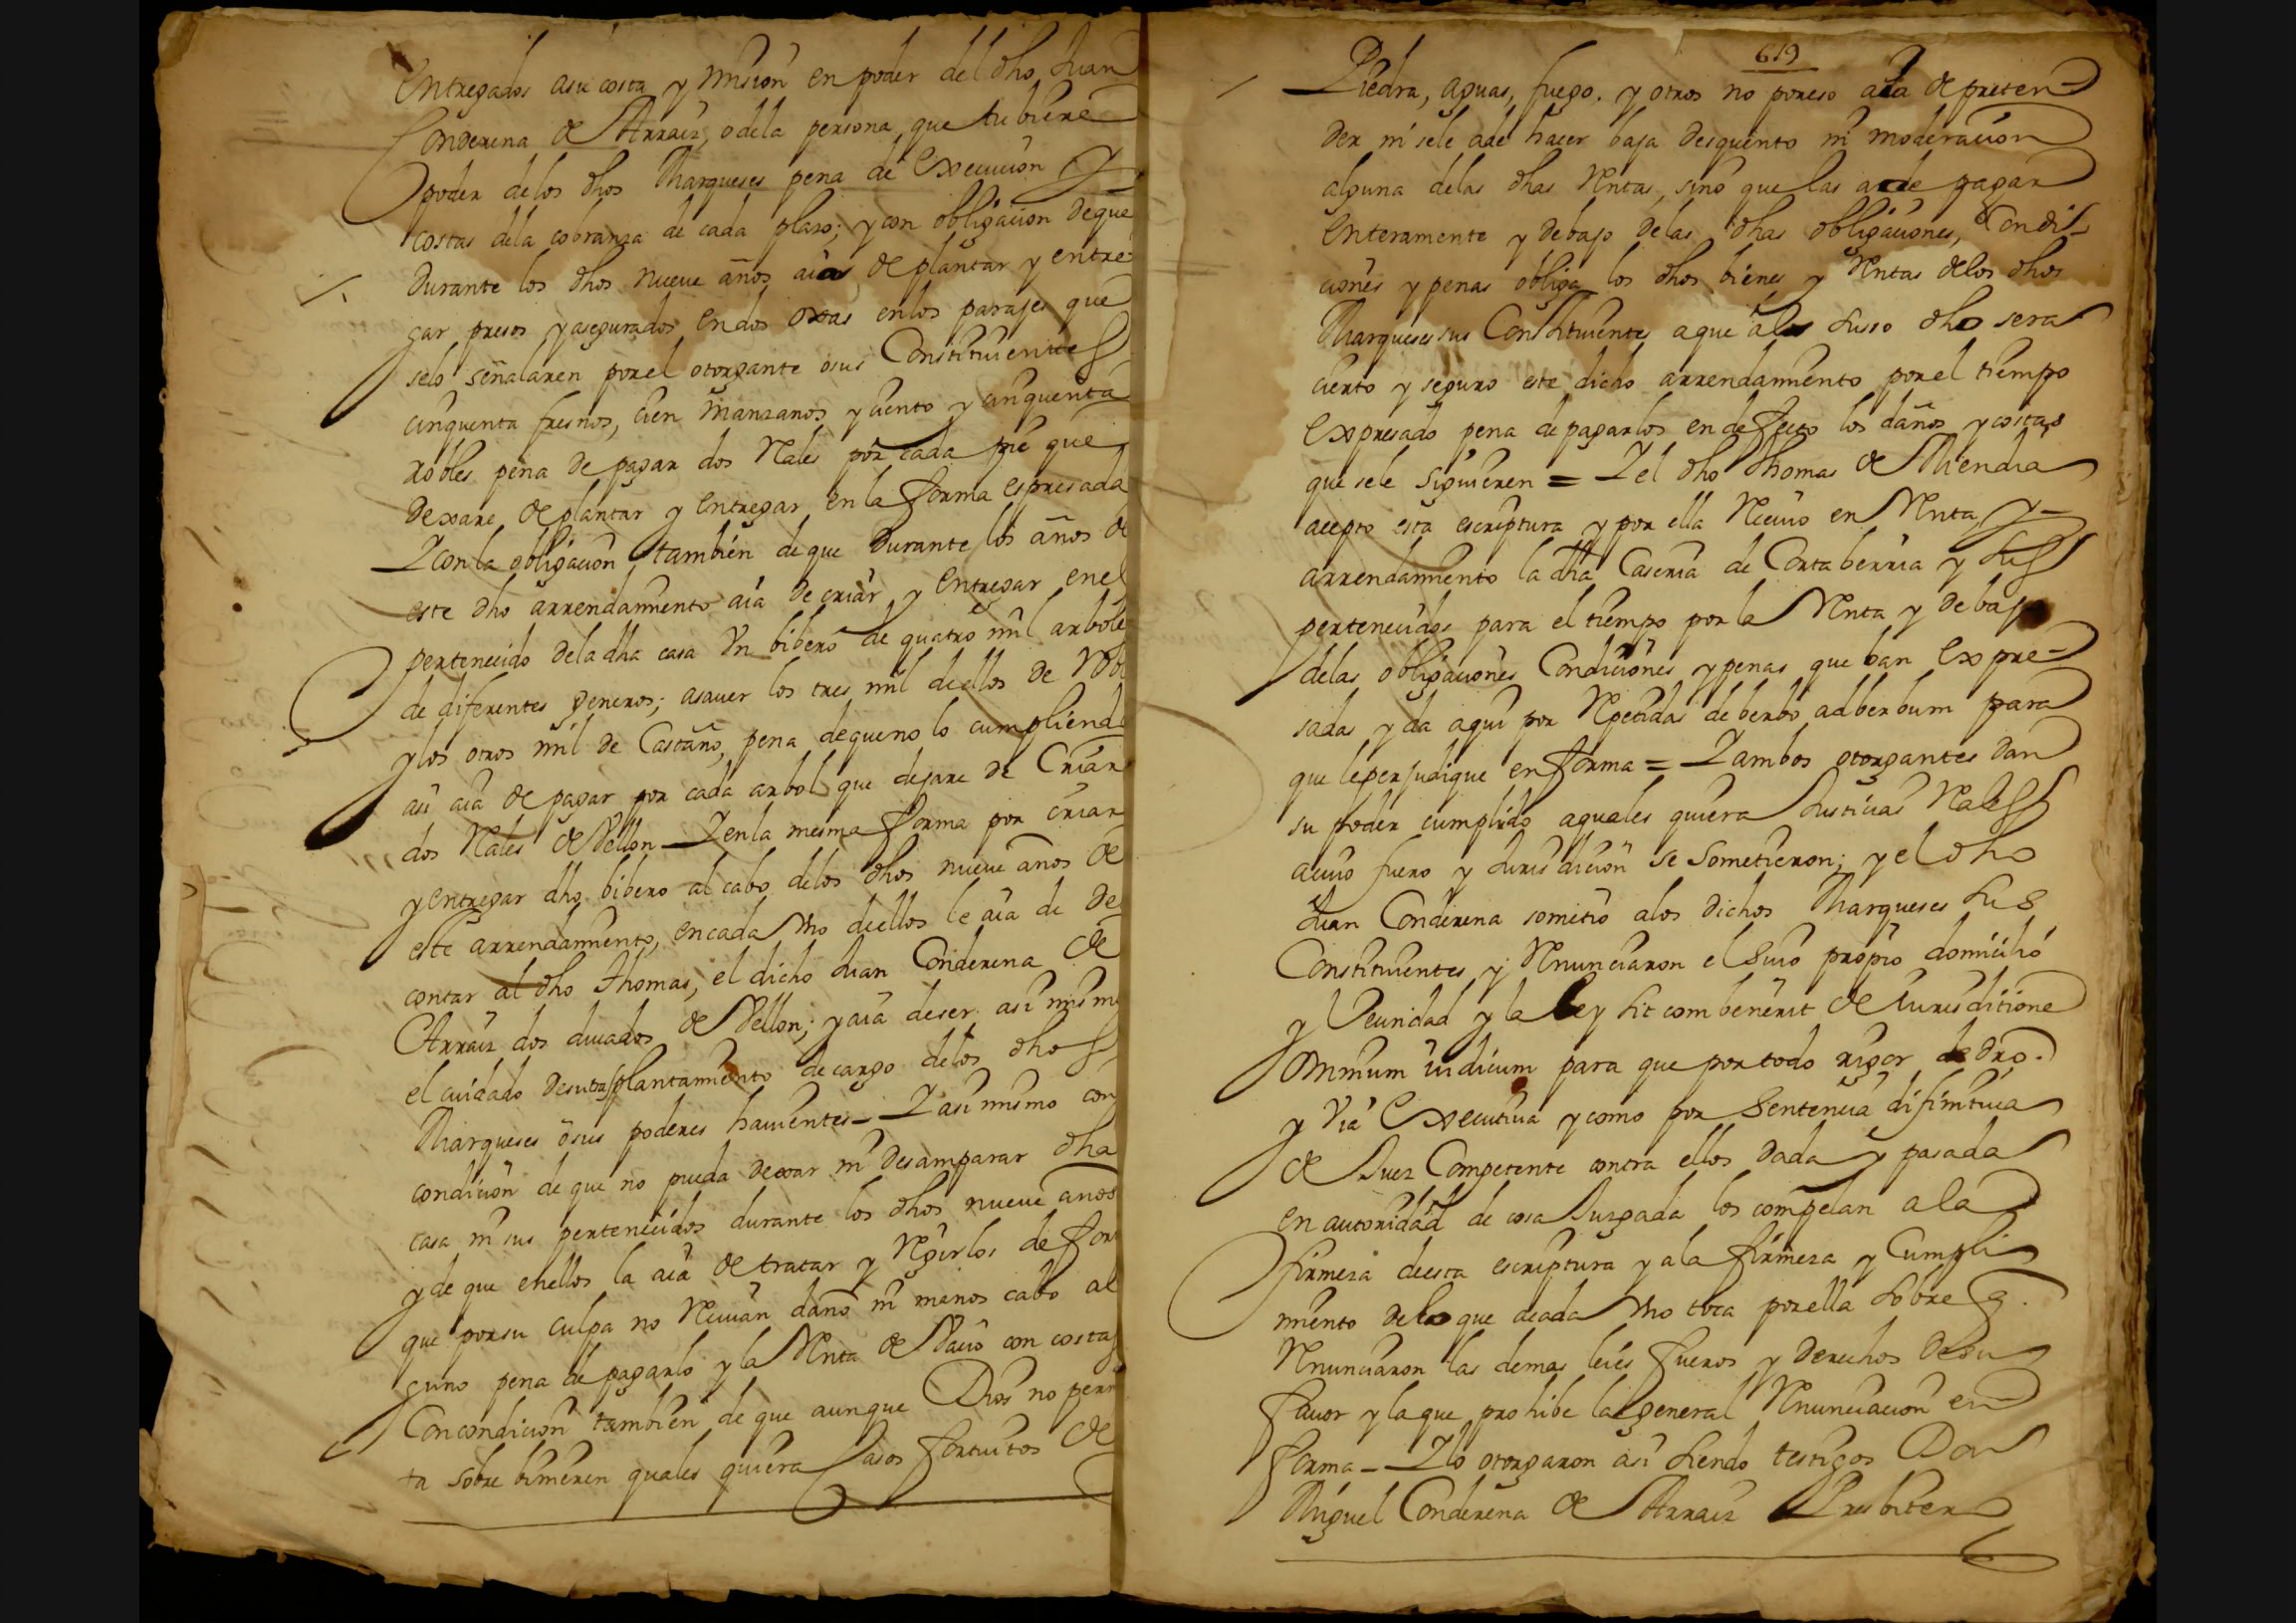 Entregados asu costa y mision en poder del dho Juan
Conderena de Arraiz, o dela persona, que tubiere
poder delos dhos Marqueses pena de Execucion y
costas dela cobranza de cada plazo; y con obligacion deque
durante los dhos nueve años aia de plantar y entre
gar presos y asegurados en dos ortas en los parajes que
selo señalaren por el otorgante o sus Constituientes
cinquenta fresnos, cien manzanos y ciento y cinquenta
robles pena de pagar dos Rales por cada pie que
dexare de plantar y entregar en la forma espresada
Y con la obligacion tambien de que durante los años de
este dho arrendamiento aia de criar y entregar en el
pertenecido dela dha casa Un bibero de quatro mil arbole
de diferentes generos; asaver los tres mil de ellos de Robl
y los otros mil de Castaño, pena de que no lo cumpliendo
asi aia de pagar por cada arbol que dejare de Criar
dos Rales de Vellon _ Y en la mesma forma por criar
y entregar dho bibero al cabo delos dhos nueve años de
este arrendamiento, en cada Uno de ellos le aia de des
contar al dho Thomas, el dicho Juan Conderena de
Arraiz dos ducados de Vellon; y aia de ser asi mismo
el cuidado de su trasplantamiento de cargo delos dhos
Marqueses o sus poderes havientes _ Y asi mismo con
condicion de que no pueda dexar ni desamparar dha
casa ni sus pertenecidos durante los dhos nueve años
y de que en ellos la aia de tratar y Regirlos de for
que por su culpa no Recivan daño ni menos cabo al
guno pena de pagarlo y la Renta de Vacio con costas
Con condicion tambien de que aunque Dios no permi
ta sobre binieren quales quiera Casos fortuitos de
619
Piedra, aguas, fuego. y otros no por eso aia de preten
der ni sele a de hacer baja desquento ni moderacion
alguna delas dhas Rentas, sino que las a de pagar
enteramente y debajo delas dhas obligaciones, Condi
ciones y penas obliga los dhos bienes y Rentas delos dhos
Marqueses sus Constituientes a que al suso dho sera
cierto y seguro este dicho arrendamiento por el tiempo
Expresado pena de pagarlos en defecto los daños y costas
que sele siguieren = Y el dho Thomas de Miendia
acepto esta escriptura y por ella Recivio en Renta y
arrendamiento la dha Caseria de Cortaberria y sus
pertenecidos para el tiempo por la Renta y debajo
delas obligaciones Condiciones y penas que ban Expre
sadas y da aqui por Repetidas de berbo adberbum para
que le perjudique en forma = Y ambos otorgantes dan
su poder cumplido a quales quiera Justicias Rales
a cuio fuero y Jurisdicion se sometieron; y el dho
Juan Conderena sometio alos dichos Marqueses sus
Constituientes y Renunciaron el Suio propio domicilio
y Vecindad y la Ley sit combenerit de Jurisditione
omnium iudicum para que por todo rigor de dro.
y Via Executiva y como por Sentencia difinitiva
de Juez Competente contra ellos dada y pasada
en autoridad de cosa Juzgada los compelan a la
firmeza de esta escriptura y a la firmeza y Cumpli
miento delo que a cada Uno toca por ella sobre q.
Renunciaron las demas leies fueros y derechos de su
favor y la que prohibe la general Renunciacion en
forma _ Y lo otorgaron asi siendo testigos Don
Miguel Conderena de Arraiz Presbitero